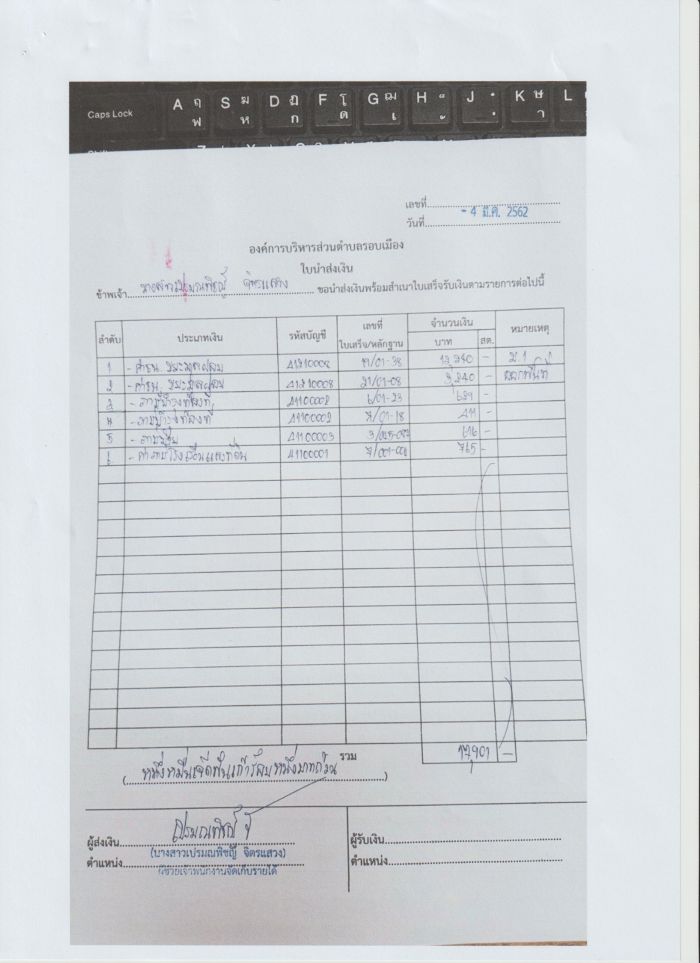 Caps Lock A ฤ ฟ S ฆ ห D ฏ ก F โ ด G ฌ เ H ็ ้ J ๋ ่ K ษ า L
เลขที่
วันที่ - 4 มี.ค. 2562
องค์การบริหารส่วนตำบลรอบเมือง
ใบนำส่งเงิน
ข้าพเจ้า นางสาวเปรมณพิชญ์ จิตรแสวง ขอนำส่งเงินพร้อมสำเนาใบเสร็จรับเงินตามรายการต่อไปนี้
ลำดับ ประเภทเงิน รหัสบัญชี เลขที่ใบเสร็จ/หลักฐาน จำนวนเงิน บาท สต. หมายเหตุ
1 - ค่าธน. ขยะมูลฝอย 41210008 19/01-38 -
2 - ค่าธน. ขยะมูลฝอย 41210008 21/01-08 3,240 -
3 - ภาษีบำรุงท้องที่ 41100002 6/01-23 689 -
4 - ภาษีบำรุงท้องที่ 41100002 7/01-18 411 -
5 - ภาษีป้าย 41100003 616 -
6 - ค่าภาษีโรงเรือนและที่ดิน 41100001 765 -
รวม 17,901 -
(หนึ่งหมื่นเจ็ดพันเก้าร้อยหนึ่งบาทถ้วน)
ผู้ส่งเงิน เปรมณพิชญ์ จิ
(นางสาวเปรมณพิชญ์ จิตรแสวง)
ตำแหน่ง ผู้ช่วยเจ้าพนักงานจัดเก็บรายได้
ผู้รับเงิน
ตำแหน่ง